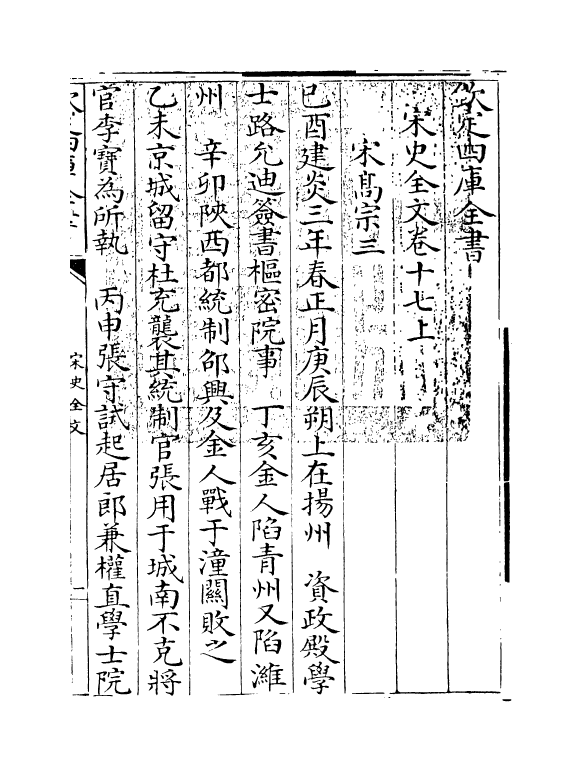 欽定四庫全書
宋史全文卷十七上
宋髙宗三
己酉建炎三年春正月庚辰朔上在揚州　資政殿學
士路允迪簽書樞密院事　丁亥金人陷青州又陷濰
州　辛卯陜西都統制邵興及金人戰于潼闗敗之
乙未京城留守杜充襲其統制官張用于城南不克將
官李寶為所執　丙申張守試起居郎兼權直學士院
宋史全文